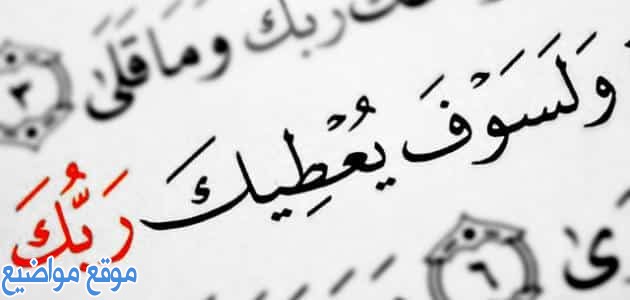 ربك وَمَا قَلَىٰ ٣
وَلَسَوْفَ يُعْطِيكَ رَبُّكَ
٦
موقع مواضيع